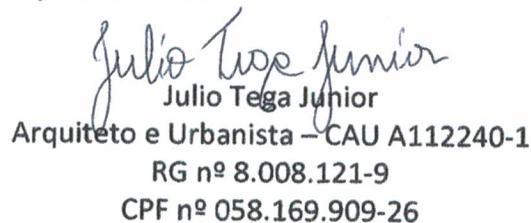 Julio Tega Junior
Julio Tega Junior
Arquiteto e Urbanista – CAU A112240-1
RG nº 8.008.121-9
CPF nº 058.169.909-26